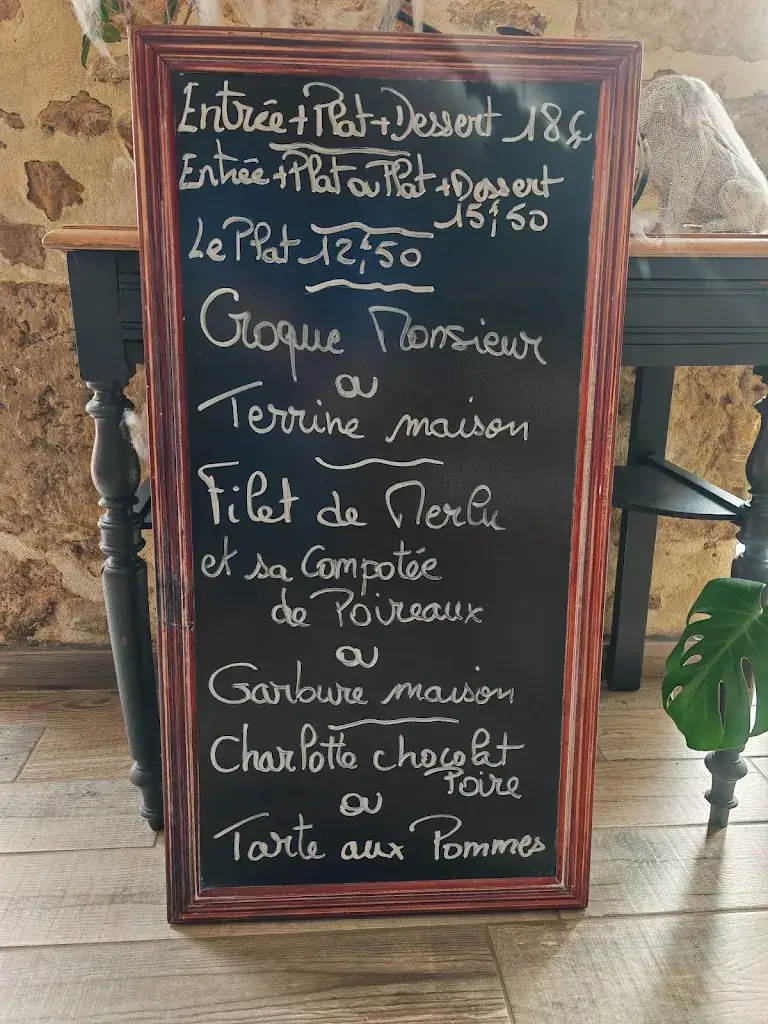 Entrée+Plat+Dessert 18€
Entrée+Plat ou Plat+Dessert
15€50
Le Plat 12€50
Croque Monsieur
ou
Terrine maison
Filet de Merlu
et sa Compotée
de Poireaux
ou
Garbure maison
Charlotte chocolat
Poire
ou
Tarte aux Pommes